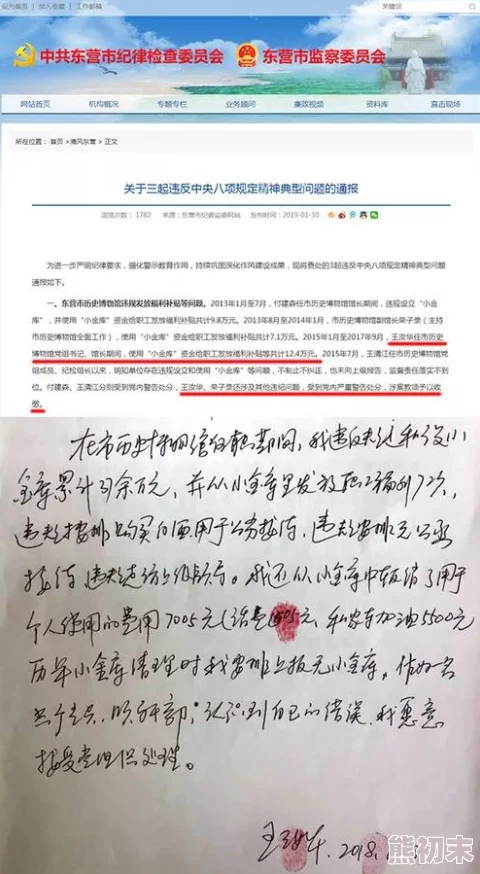 设为首页 | 加入收藏 | 工作邮箱
关键词
中共东营市纪律检查委员会 东营市监察委员会
网站首页 机构概况 专题专栏 业务顾问 廉政视频 资料库 直击现场
所在位置： 首页 > 清风东营 > 正文
关于三起违反中央八项规定精神典型问题的通报
浏览次数： 1782 来源：东营市纪委监委网站 发布时间：2019-01-30
为进一步严明纪律要求，强化警示教育作用，持续巩固深化作风建设成果，现将查处的3起违反中央八项规定精神典型问题
通报如下。
一、东营市历史博物馆违规发放福利补贴等问题。2013年1月至7月，付建森任市历史博物馆馆长期间，违规设立“小金
库”，并使用“小金库”资金给职工发放福利补贴共计9.8万元。2013年8月至2014年1月，市历史博物馆副馆长荣子录（主持
市历史博物馆全面工作），使用“小金库”资金给职工发放福利补贴共计7.1万元。2015年1月至2017年9月，王汝华任市历史
博物馆党组书记、馆长期间，使用“小金库”资金给职工发放福利补贴等共计12.4万元。2015年7月，王清江任市历史博物馆党
组成员、纪检组长以来，明知单位存在违规设立和使用“小金库”等问题，不制止不纠正，也未向上级报告，监督责任落实不到
位。付建森、王清江分别受到党内警告处分，王汝华、荣子录还涉及其他违纪问题，受到党内严重警告处分，涉案款项予以收
缴。
在市历史博物馆任职期间，我违反规定私设小
金库累计 余万元，并从小金库里发放职工福利72次，
违规安排购买白酒用于公务接待，违规安排无公函
接待 违规 领导。我还从小金库中报销了用于
个人使用的费用7005元（话费 元，私家车加油5500元
历年小金库清理时我安排上报无小金库，作为一名
党员，领导干部，认识到自己的错误，我愿意
接受党组织处理。
王汝华 2018.
熊初末